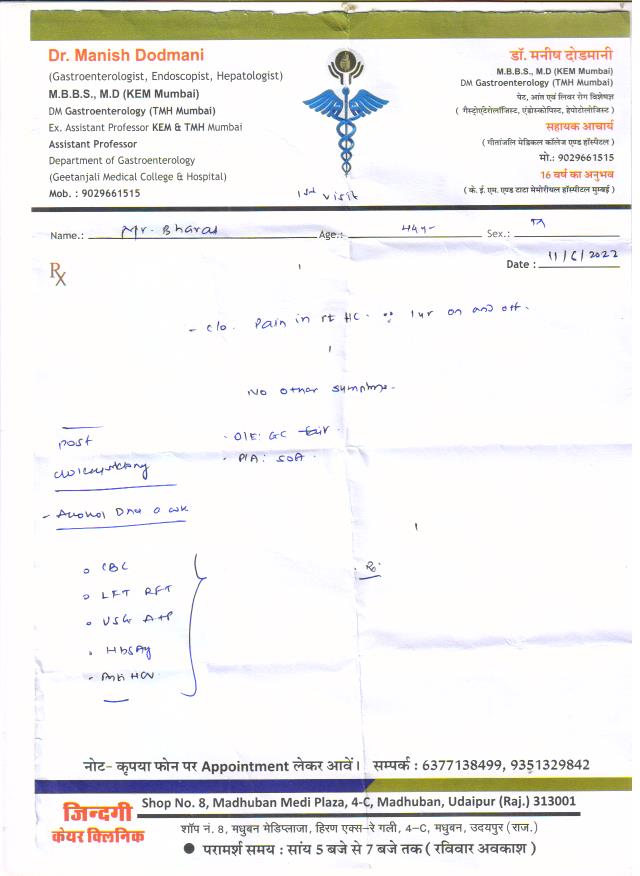 Dr. Manish Dodmani
(Gastroenterologist, Endoscopist, Hepatologist)
M.B.B.S., M.D (KEM Mumbai)
DM Gastroenterology (TMH Mumbai)
Ex. Assistant Professor KEM & TMH Mumbai
Assistant Professor
Department of Gastroenterology
(Geetanjali Medical College & Hospital)
Mob. : 9029661515
डॉ. मनीष दोडमानी
M.B.B.S., M.D (KEM Mumbai)
DM Gastroenterology (TMH Mumbai)
पेट, आंत एवं लिवर रोग विशेषज्ञ
( गैस्ट्रोएंटेरोलॉजिस्ट, एंडोस्कोपिस्ट, हेपेटोलोजिस्ट )
सहायक आचार्य
( गीतांजलि मेडिकल कॉलेज एण्ड हॉस्पीटल )
मो.: 9029661515
16 वर्ष का अनुभव
( के. ई. एम. एण्ड टाटा मेमोरीयल हॉस्पीटल मुम्बई )
1st visit
Name.: Mr. Bharat Age.: 44yr Sex.: M
Rx
Date : 11/6/2022
- c/o. Pain in rt HC. 1yr on and off.
No other symptoms.
post
cholecystectomy
- Alcohol
· O/E: GC fair.
· P/A: Soft.
CBC
LFT RFT
USG A+P
HbsAg
Anti HCV
Rx
नोट- कृपया फोन पर Appointment लेकर आवें। सम्पर्क : 6377138499, 9351329842
जिन्दगी
केयर क्लिनिक
Shop No. 8, Madhuban Medi Plaza, 4-C, Madhuban, Udaipur (Raj.) 313001
शॉप नं. 8, मधुबन मेडिप्लाजा, हिरण एक्स-रे गली, 4-C, मधुबन, उदयपुर (राज.)
● परामर्श समय : सांय 5 बजे से 7 बजे तक ( रविवार अवकाश )